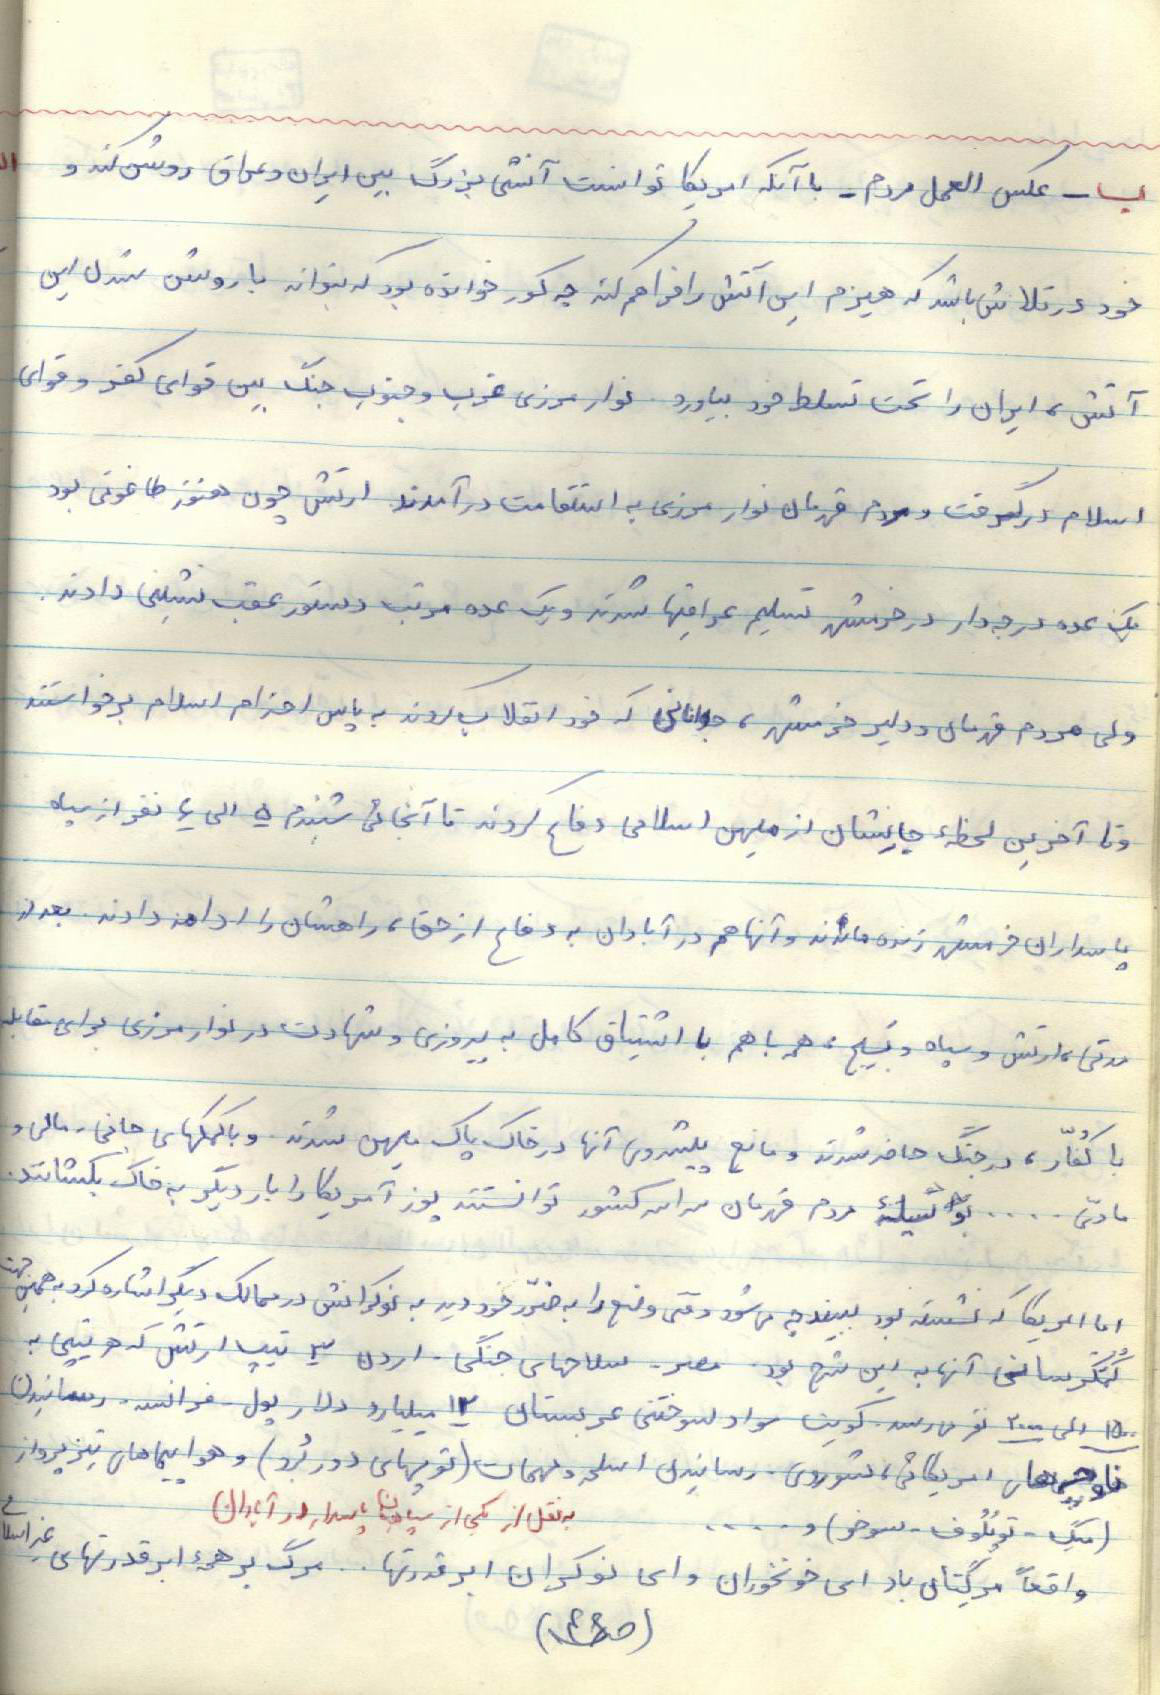 ب - عکس العمل مردم - با آنکه امریکا توانست آتشی بزرگ بین ایران و عراق روشن کند و
خود در تلاش باشد که هیزم این آتش را فراهم کند چه کور خوانده بود که بتواند با روشن شدن این
آتش، ایران را تحت تسلط خود بیاورد. نوار مرزی غرب و جنوب جنگ بین قوای کفر و قوای
اسلام درگرفت و مردم قهرمان نوار مرزی به استقامت درآمدند. ارتش چون هنوز طاغوتی بود
یک عده درجه‌دار در خرمشهر تسلیم عراقیها شدند و یک عده مرتب دستور عقب نشینی دادند.
ولی مردم قهرمان و دلیر خرمشهر، جوانانی که خود انقلاب کردند به پاس احترام اسلام برخواستند
و تا آخرین لحظهٔ جانشان از میهن اسلامی دفاع کردند تا آنجائی شنیدم ۵ الی ۶ نفر از سپاه
پاسداران خرمشهر زنده ماندند و آنها هم در آبادان به دفاع از حق، راهشان را ادامه دادند. بعد از
مدتی، ارتش و سپاه و بسیج، همه با هم با اشتیاق کامل به پیروزی و شهادت در نوار مرزی برای مقابله
با کفّار، در جنگ حاضر شدند و مانع پیشروی آنها در خاک پاک میهن شدند. و با کمکهای جانی - مالی و
مادّی ..... مردم قهرمان سراسر کشور توانستند پوز آمریکا را بار دیگر به خاک بکشانند.
اما امریکا که نشسته بود ببیند چه می‌شود وقتی وضع را به ضرّر خود دید به نوکرانش در ممالک دیگر اشاره کرد به همین جهت
کُمَکرسانی آنها به این شرح بود. مصر - سلاحهای جنگی - اردن ۳ تیپ ارتش که هر تیپی به
۱۵۰۰ الی ۲۰۰۰ نفر می‌رسد. کویت مواد سوختنی عربستان ۱۲ میلیارد دلار پول - فرانسه - رسانیدن
ناوچه‌های امریکائی، شوروی - رسانیدن اسلحه و مهمات (توپهای دور بُرد) و هواپیماهای تیز پرواز
(میگ - توپُلُوف - سوخو) و ..... به نقل از یکی از سپاهیان پاسدار در آبادان
واقعاً مرگتان باد ای خونخوران و ای نوکران ابرقدرتها .. مرگ بر همهٔ ابرقدرتهای غیر اسلامی